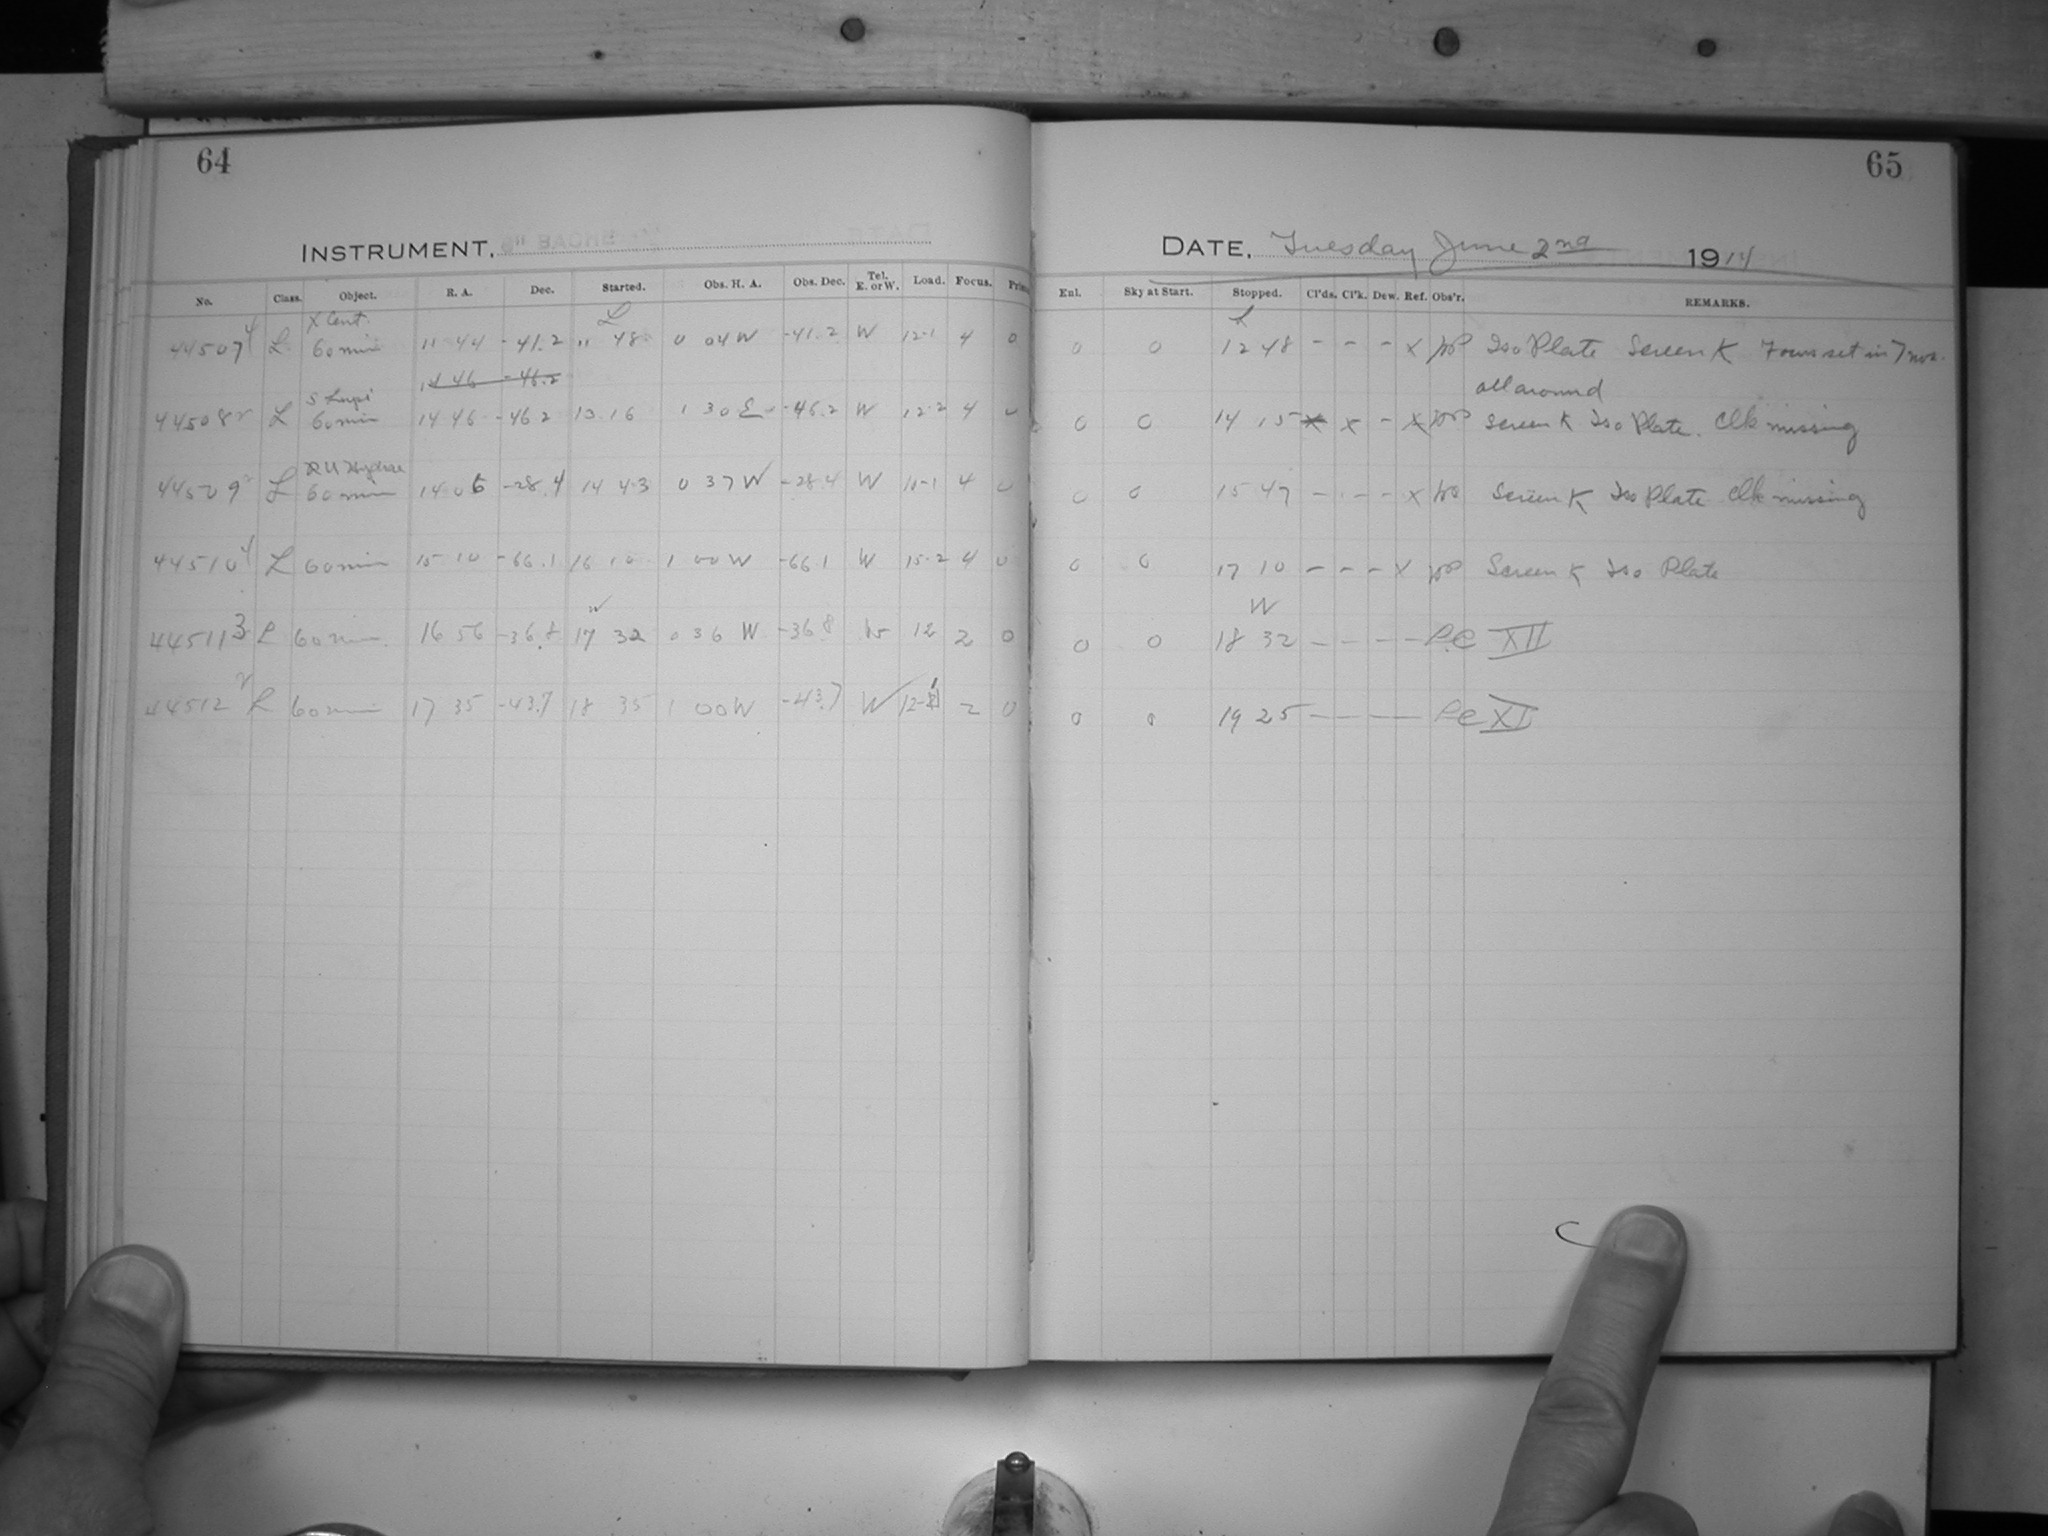 64
INSTRUMENT,
No. Class. Object. R. A. Dec. Started. Obs. H. A. Obs. Dec. Tel. E. or W. Load. Focus.
X Cent. L
44507 L 60 min 11 44 -41.2 11 48 0 04 W -41.2 W 12-1 4 0
14 46 -46.2
S Lupi
44508 L 60 min 14 46 -46 2 13 16 1 30 E -46.2 W 12-2 4 0
RU Hydrae
44509 L 60 min 14 06 -28.4 14 43 0 37 W -28.4 W 4 0
44510 L 60 min 15 10 -66.1 16 10 1 00 W -66.1 W 15-2 4 0
W
44511 L 60 min. 16 56 -36.8 17 32 0 36 W -36 8 W 12 2 0
44512 L 60 min 17 35 -43.7 18 35 1 00 W -43.7 W 2 0
65
DATE, Tuesday June 2nd 1914
Enl. Sky at Start. Stopped. Cl'ds. Cl'k. Dew. Ref. Obs'r. REMARKS.
L
0 0 12 48 - - - X Iso Plate Screen K Focus set in 7
all around
0 0 14 15 X X - X Screen K Iso Plate. Clk missing
0 0 15 47 - - - X Screen K Iso Plate Clk missing
0 0 17 10 - - - X Screen K Iso Plate
W
0 0 18 32 - - - - P.C XII
0 0 19 25 - - - - P C XI